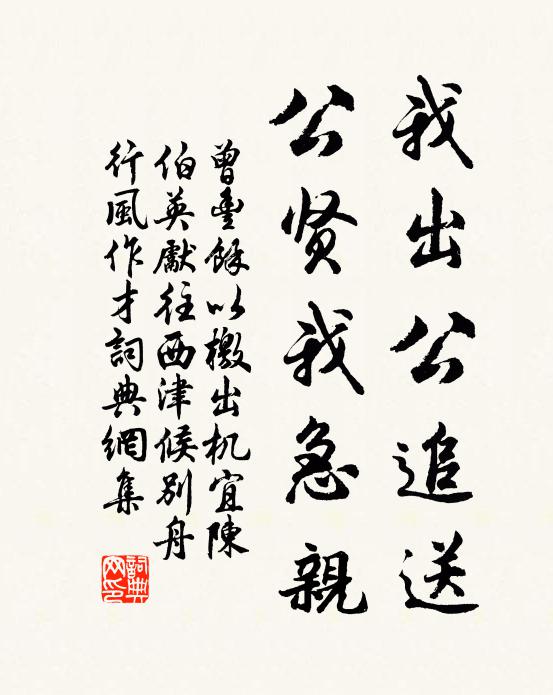 我出公追送
公贤我急親
曾豊餘以檄出机宜陳
伯英獻往西津候別舟
行風作才詞典網集
詞典网印